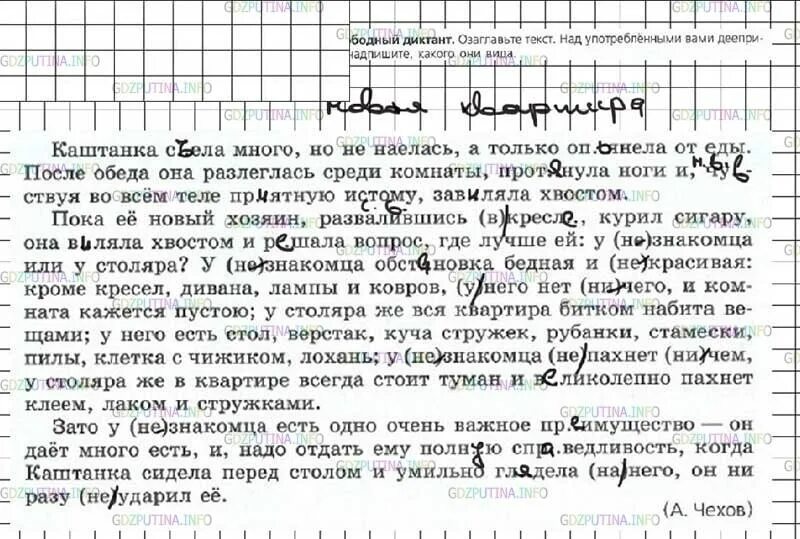 бодный диктант. Озаглавьте текст. Над употреблёнными вами деепри-
надпишите, какого они вида.
новая квартира
Каштанка съела много, но не наелась, а только опьянела от еды.
После обеда она разлеглась среди комнаты, протянула ноги и, чув-
ствуя во всём теле приятную истому, завиляла хвостом.
Пока её новый хозяин, развалившись (в)кресле, курил сигару,
она виляла хвостом и решала вопрос, где лучше ей: у (не)знакомца
или у столяра? У (не)знакомца обстановка бедная и (не)красивая:
кроме кресел, дивана, лампы и ковров, (у)него нет (ни)чего, и ком-
ната кажется пустою; у столяра же вся квартира битком набита ве-
щами; у него есть стол, верстак, куча стружек, рубанки, стамески,
пилы, клетка с чижиком, лохань; у (не)знакомца (не)пахнет (ни)чем,
у столяра же в квартире всегда стоит туман и великолепно пахнет
клеем, лаком и стружками.
Зато у (не)знакомца есть одно очень важное преимущество — он
даёт много есть, и, надо отдать ему полную справедливость, когда
Каштанка сидела перед столом и умильно глядела (на)него, он ни
разу (не)ударил её.
(А. Чехов)